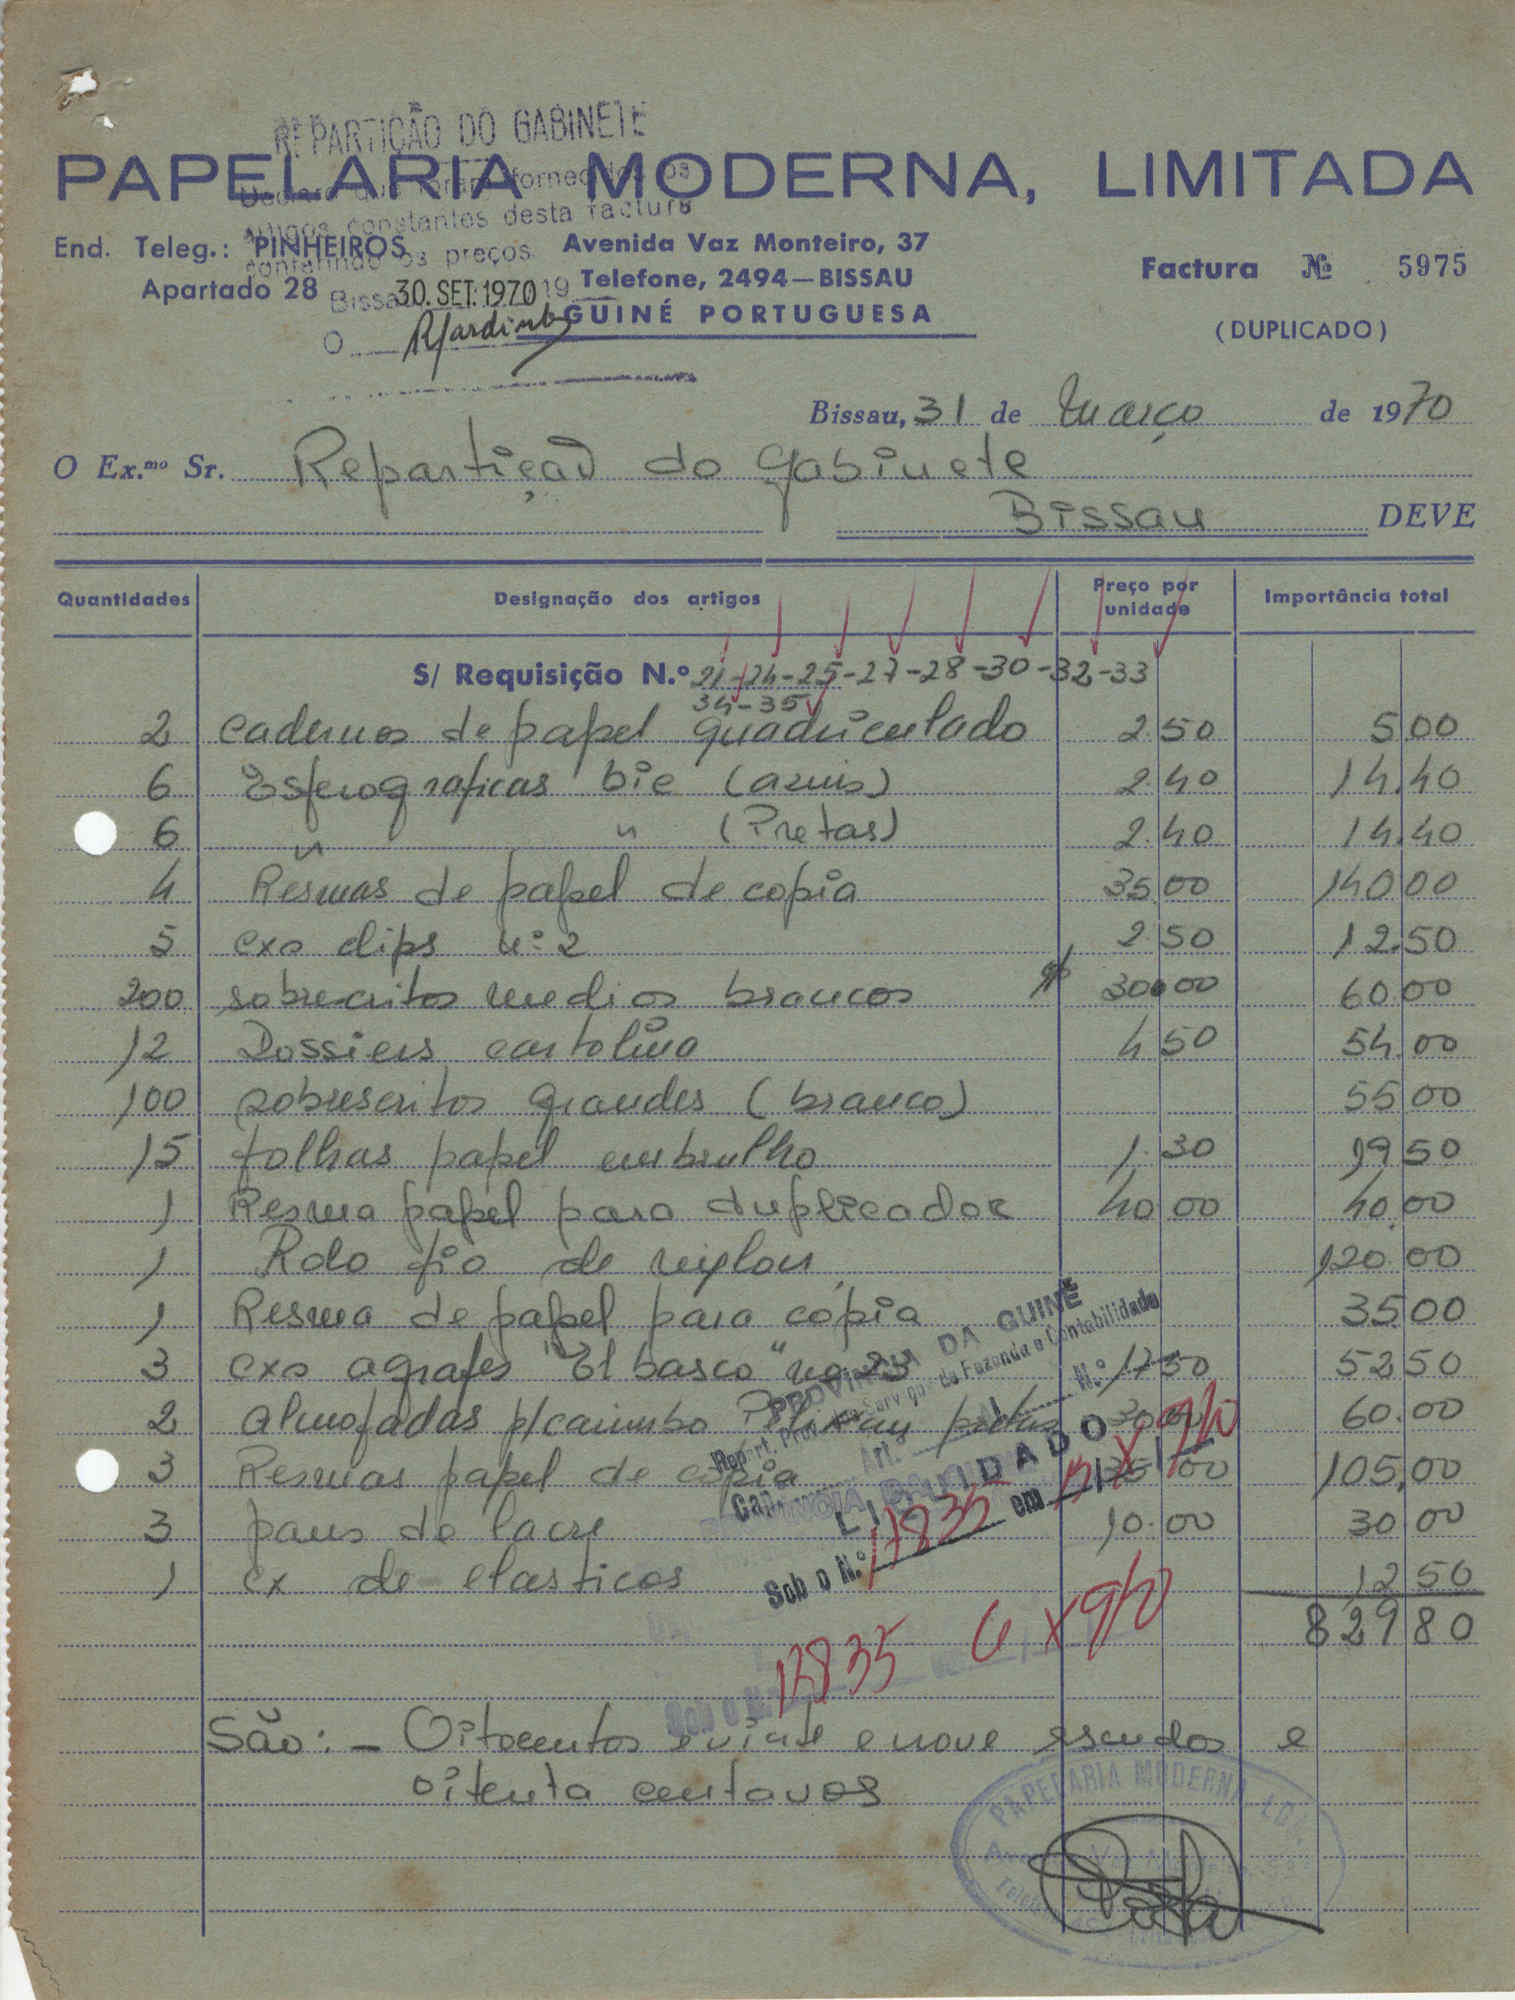 REPARTIÇÃO DO GABINETE
PAPELARIA MODERNA, LIMITADA
constantes desta factura
os preços
End. Teleg.: PINHEIROS
Apartado 28
Bissau 30. SET. 1970 19
O
Avenida Vaz Monteiro, 37
Telefone, 2494—BISSAU
GUINÉ PORTUGUESA
Factura Nº 5975
(DUPLICADO)
Bissau, 31 de Março de 1970
O Ex.mo Sr. Repartição do Gabinete
Bissau DEVE
Quantidades Designação dos artigos Preço por unidade Importância total
S/ Requisição N.º 21-24-25-27-28-30-32-33
34-35
2 cadernos de papel quadriculado 2.50 5.00
6 Esferograficas bic (azuis) 2.40 14.40
6 " " (Pretas) 2.40 14.40
4 Resmas de papel de copia 35.00 140.00
5 cxs clips nº 2 2.50 12.50
200 sobrescritos medios brancos 300.00 60.00
12 Dossiers cartolina 4.50 54.00
100 sobrescritos grandes (branco) 55.00
15 folhas papel embrulho 1.30 19.50
1 Resma papel para duplicador 40.00 40.00
1 Rolo fio de nylon 120.00
1 Resma de papel para cópia 35.00
3 cxs agrafes "El basco" nº 23 17.50 52.50
2 almofadas p/carimbo Pelikan pretas 30.00 60.00
3 Resmas papel de copia 35.00 105,00
3 paus de lacre 10.00 30.00
1 cx de elasticos 12.50
829.80
PROVINCIA DA GUINÉ
Repart. Prov. dos Serviços de Fazenda e Contabilidade
Cap. Art.º N.º
LIQUIDADO
Sob o N.º 17835 em
17835
Sob o N.º
São: - Oitocentos e vinte e nove escudos e
oitenta centavos
PAPELARIA MODERNA, LDA.